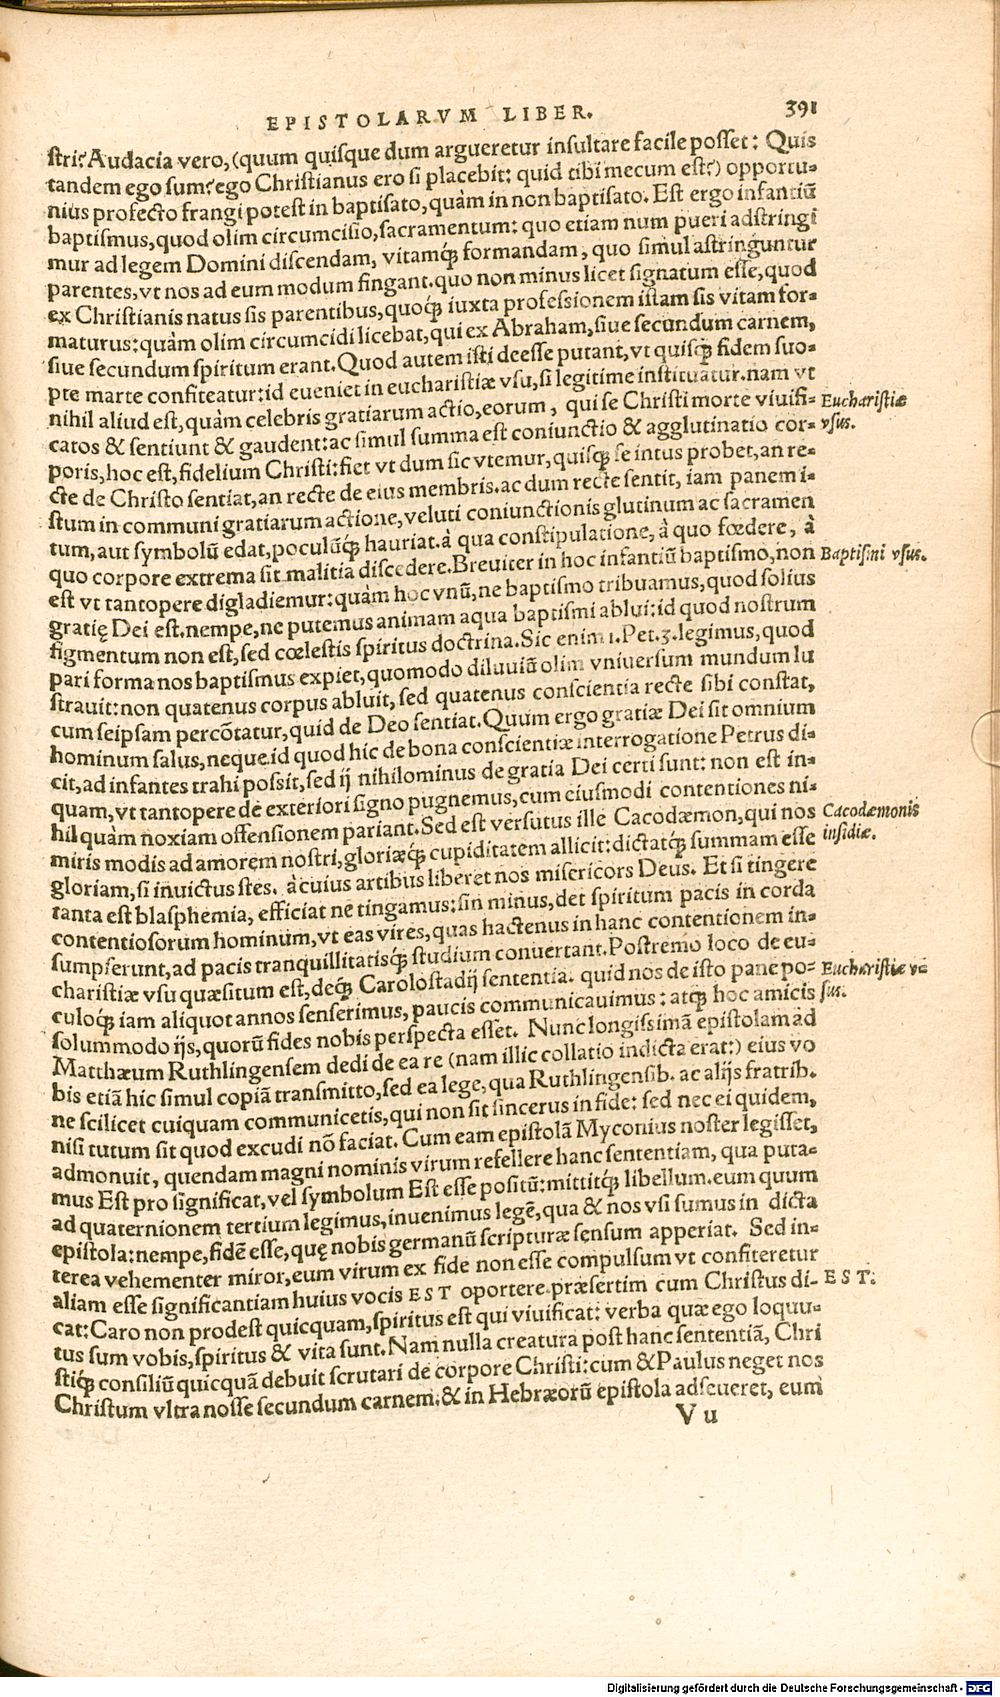 EPISTOLARVM LIBER. 391
ſtri? Audacia vero, (quum quiſque dum argueretur inſultare facile poſſet: Quis
tandem ego ſum? ego Chriſtianus ero ſi placebit: quid tibi mecum eſt?) opportu-
nius profecto frangi poteſt in baptiſato, quàm in non baptiſato. Eſt ergo infantiũ
baptiſmus, quod olim circumciſio, ſacramentum: quo etiam num pueri adſtringi
mur ad legem Domini diſcendam, vitamq́; formandam, quo ſimul aſtringuntur
parentes, vt nos ad eum modum fingant. quo non minus licet ſignatum eſſe, quod
ex Chriſtianis natus ſis parentibus, quoq́; iuxta profeſsionem iſtam ſis vitam for-
maturus: quàm olim circumcidi licebat, qui ex Abraham, ſiue ſecundum carnem,
ſiue ſecundum ſpiritum erant. Quod autem iſti deeſſe putant, vt quiſq́; fidem ſuo-
pte marte confiteatur: id eueniet in euchariſtiæ vſu, ſi legitime inſtituatur. nam vt
nihil aliud eſt, quàm celebris gratiarum actio, eorum, qui ſe Chriſti morte viuifi- Euchariſtiæ
catos & ſentiunt & gaudent: ac ſimul ſumma eſt coniunctio & agglutinatio cor- vſus.
poris, hoc eſt, fidelium Chriſti: fiet vt dum ſic vtemur, quiſq́; ſe intus probet, an re-
cte de Chriſto ſentiat, an recte de eius membris. ac dum recte ſentit, iam panem i-
ſtum in communi gratiarum actione, veluti coniunctionis glutinum ac ſacramen
tum, aut ſymbolũ edat, poculũq́; hauriat. à qua conſtipulatione, à quo fœdere, à
quo corpore extrema ſit malitia diſcedere. Breuiter in hoc infantiũ baptiſmo, non Baptiſmi vſus.
eſt vt tantopere digladiemur: quàm hoc vnũ, ne baptiſmo tribuamus, quod ſolius
gratię Dei eſt. nempe, ne putemus animam aqua baptiſmi ablui: id quod noſtrum
figmentum non eſt, ſed cœleſtis ſpiritus doctrina. Sic enim 1. Pet. 3. legimus, quod
pari forma nos baptiſmus expiet, quomodo diluuiũ olim vniuerſum mundum lu
ſtrauit: non quatenus corpus abluit, ſed quatenus conſcientia recte ſibi conſtat,
cum ſeipſam percõtatur, quid de Deo ſentiat. Quum ergo gratiæ Dei ſit omnium
hominum ſalus, neque id quod hic de bona conſcientiæ interrogatione Petrus di-
cit, ad infantes trahi poſsit, ſed ij nihilominus de gratia Dei certi ſunt: non eſt in-
quam, vt tantopere de exteriori ſigno pugnemus, cum eiuſmodi contentiones ni-
hil quàm noxiam offenſionem pariant. Sed eſt verſutus ille Cacodæmon, qui nos Cacodæmonis
miris modis ad amorem noſtri, gloriæq́; cupiditatem allicit: dictatq́; ſummam eſſe inſidiæ.
gloriam, ſi inuictus ſtes. à cuius artibus liberet nos miſericors Deus. Et ſi tingere
tanta eſt blaſphemia, efficiat ne tingamus: ſin minus, det ſpiritum pacis in corda
contentioſorum hominum, vt eas vires, quas hactenus in hanc contentionem in-
ſumpſerunt, ad pacis tranquillitatisq́; ſtudium conuertant. Poſtremo loco de eu-
chariſtiæ vſu quæſitum eſt, deq́; Caroloſtadij ſententia. quid nos de iſto pane po- Euchariſtiæ v-
culoq́; iam aliquot annos ſenſerimus, paucis communicauimus: atq́; hoc amicis ſus.
ſolummodo ijs, quorũ fides nobis perſpecta eſſet. Nunc longiſsimã epiſtolam ad
Matthæum Ruthlingenſem dedi de ea re (nam illic collatio indicta erat:) eius vo
bis etiã hic ſimul copiã tranſmitto, ſed ea lege, qua Ruthlingenſib. ac alijs fratrib.
ne ſcilicet cuiquam communicetis, qui non ſit ſincerus in fide: ſed nec ei quidem,
niſi tutum ſit quod excudi nõ faciat. Cum eam epiſtolã Myconius noſter legiſſet,
admonuit, quendam magni nominis virum refellere hanc ſententiam, qua puta-
mus Eſt pro ſignificat, vel ſymbolum Eſt eſſe poſitũ: mittitq́; libellum. eum quum
ad quaternionem tertium legimus, inuenimus legẽ, qua & nos vſi ſumus in dicta
epiſtola: nempe, fidẽ eſſe, quę nobis germanũ ſcripturæ ſenſum apperiat. Sed in-
terea vehementer miror, eum virum ex fide non eſſe compulſum vt confiteretur
aliam eſſe ſignificantiam huius vocis EST oportere. præſertim cum Chriſtus di- EST.
cat: Caro non prodeſt quicquam, ſpiritus eſt qui viuificat: verba quæ ego loquu-
tus ſum vobis, ſpiritus & vita ſunt. Nam nulla creatura poſt hanc ſententiã, Chri
ſtiq́; conſiliũ quicquã debuit ſcrutari de corpore Chriſti: cum & Paulus neget nos
Chriſtum vltra noſſe ſecundum carnem. & in Hebræorũ epiſtola adſeueret, eum
V u
Digitalisierung gefördert durch die Deutsche Forschungsgemeinschaft - DFG